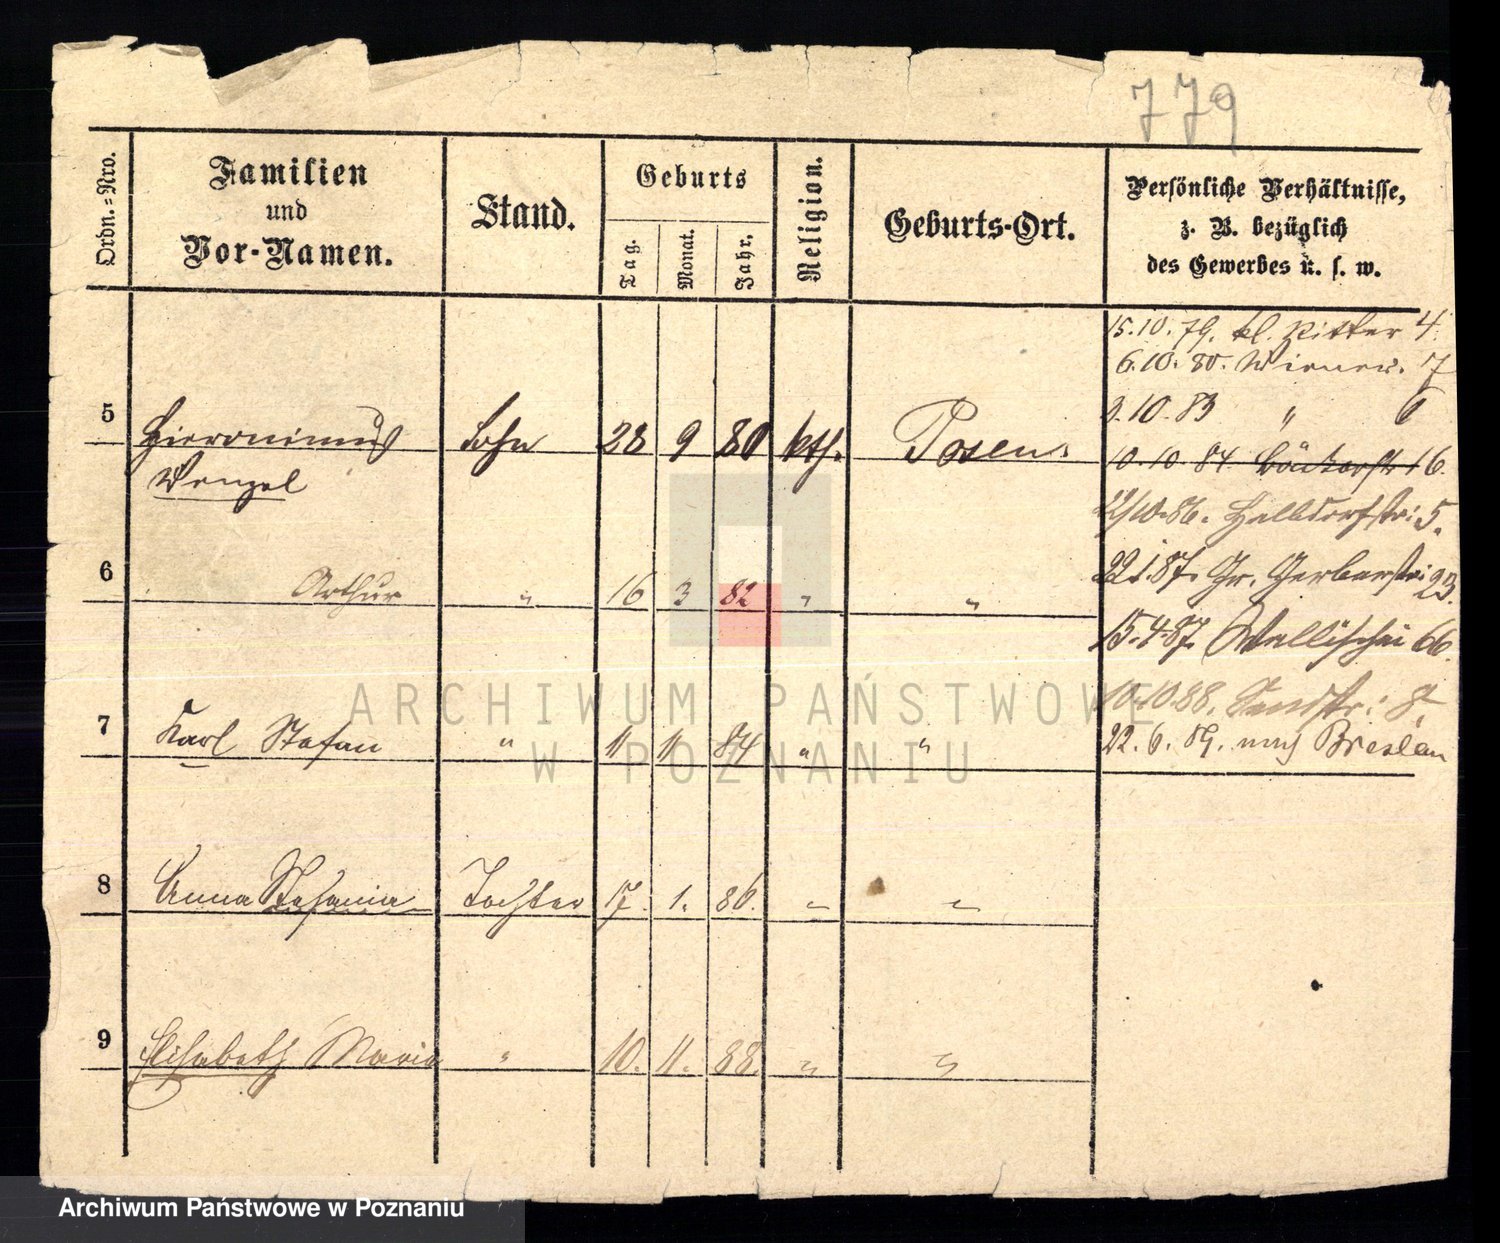 779
Ordn.=Nro.
Familien
und
Vor-Namen.
Stand.
Geburts
Tag.
Monat.
Jahr.
Religion.
Geburts-Ort.
Persönliche Verhältnisse,
z. B. bezüglich
des Gewerbes u. s. w.
15.10.79. kl. Ritter 4.
6.10.80. Wiener. 7
3.10.83 " 6
5 Hieronimus Sohn 28 9 80 kth. Posen
Wenzel
10.10.84 Bäckerstr 16.
22/10.86. Halbdorfstr: 5.
6 Arthur " 16 3 82 " "
22.1.87. Gr. Gerberstr: 23.
15.4.87. Wallischei 66.
10.10.88. Sandstr: 8.
7 Karl Stefan " 11 11 84 " "
22.6.89. nach Breslau
8 Anna Stefania Tochter 17. 1. 86. " "
9 Elisabeth Maria " 10. 11. 88. " "
ARCHIWUM PAŃSTWOWE
W POZNANIU
Archiwum Państwowe w Poznaniu